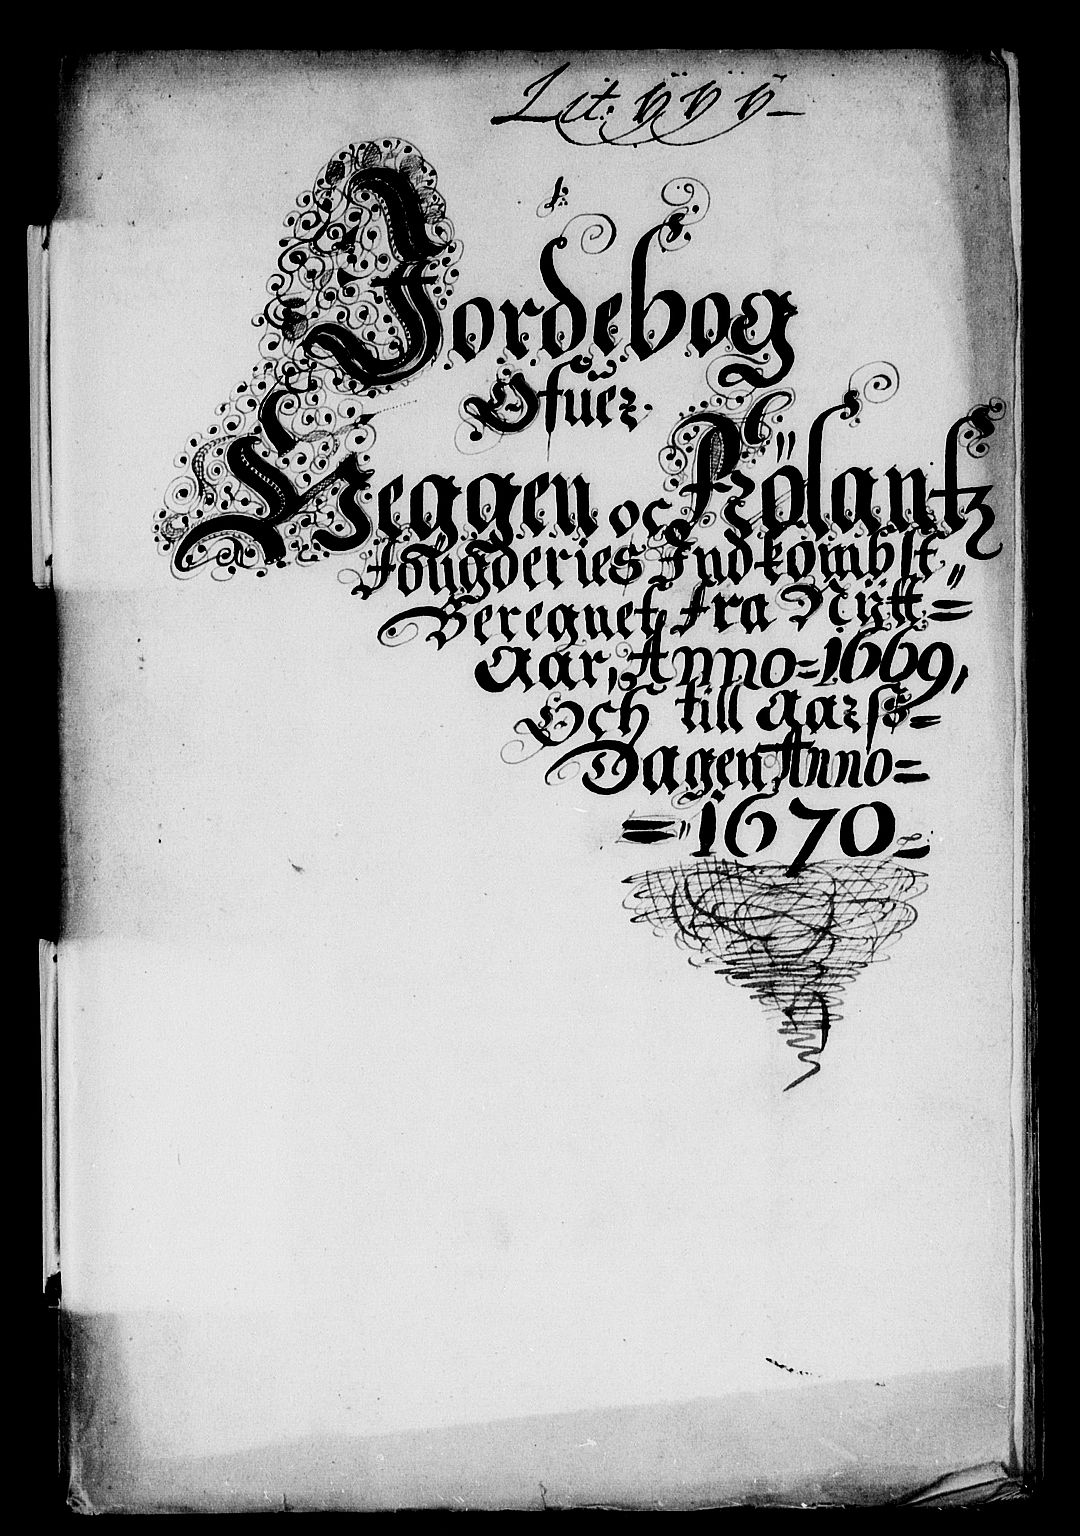 Lit: ÿÿÿ
Jordebog
Ofuer
Heggen oc Frölantz
fougderies Indkombst
Beregnet fra Nÿtt=
Aar, Anno=1669,
Och till Aars=
Dagen Anno=
=1670